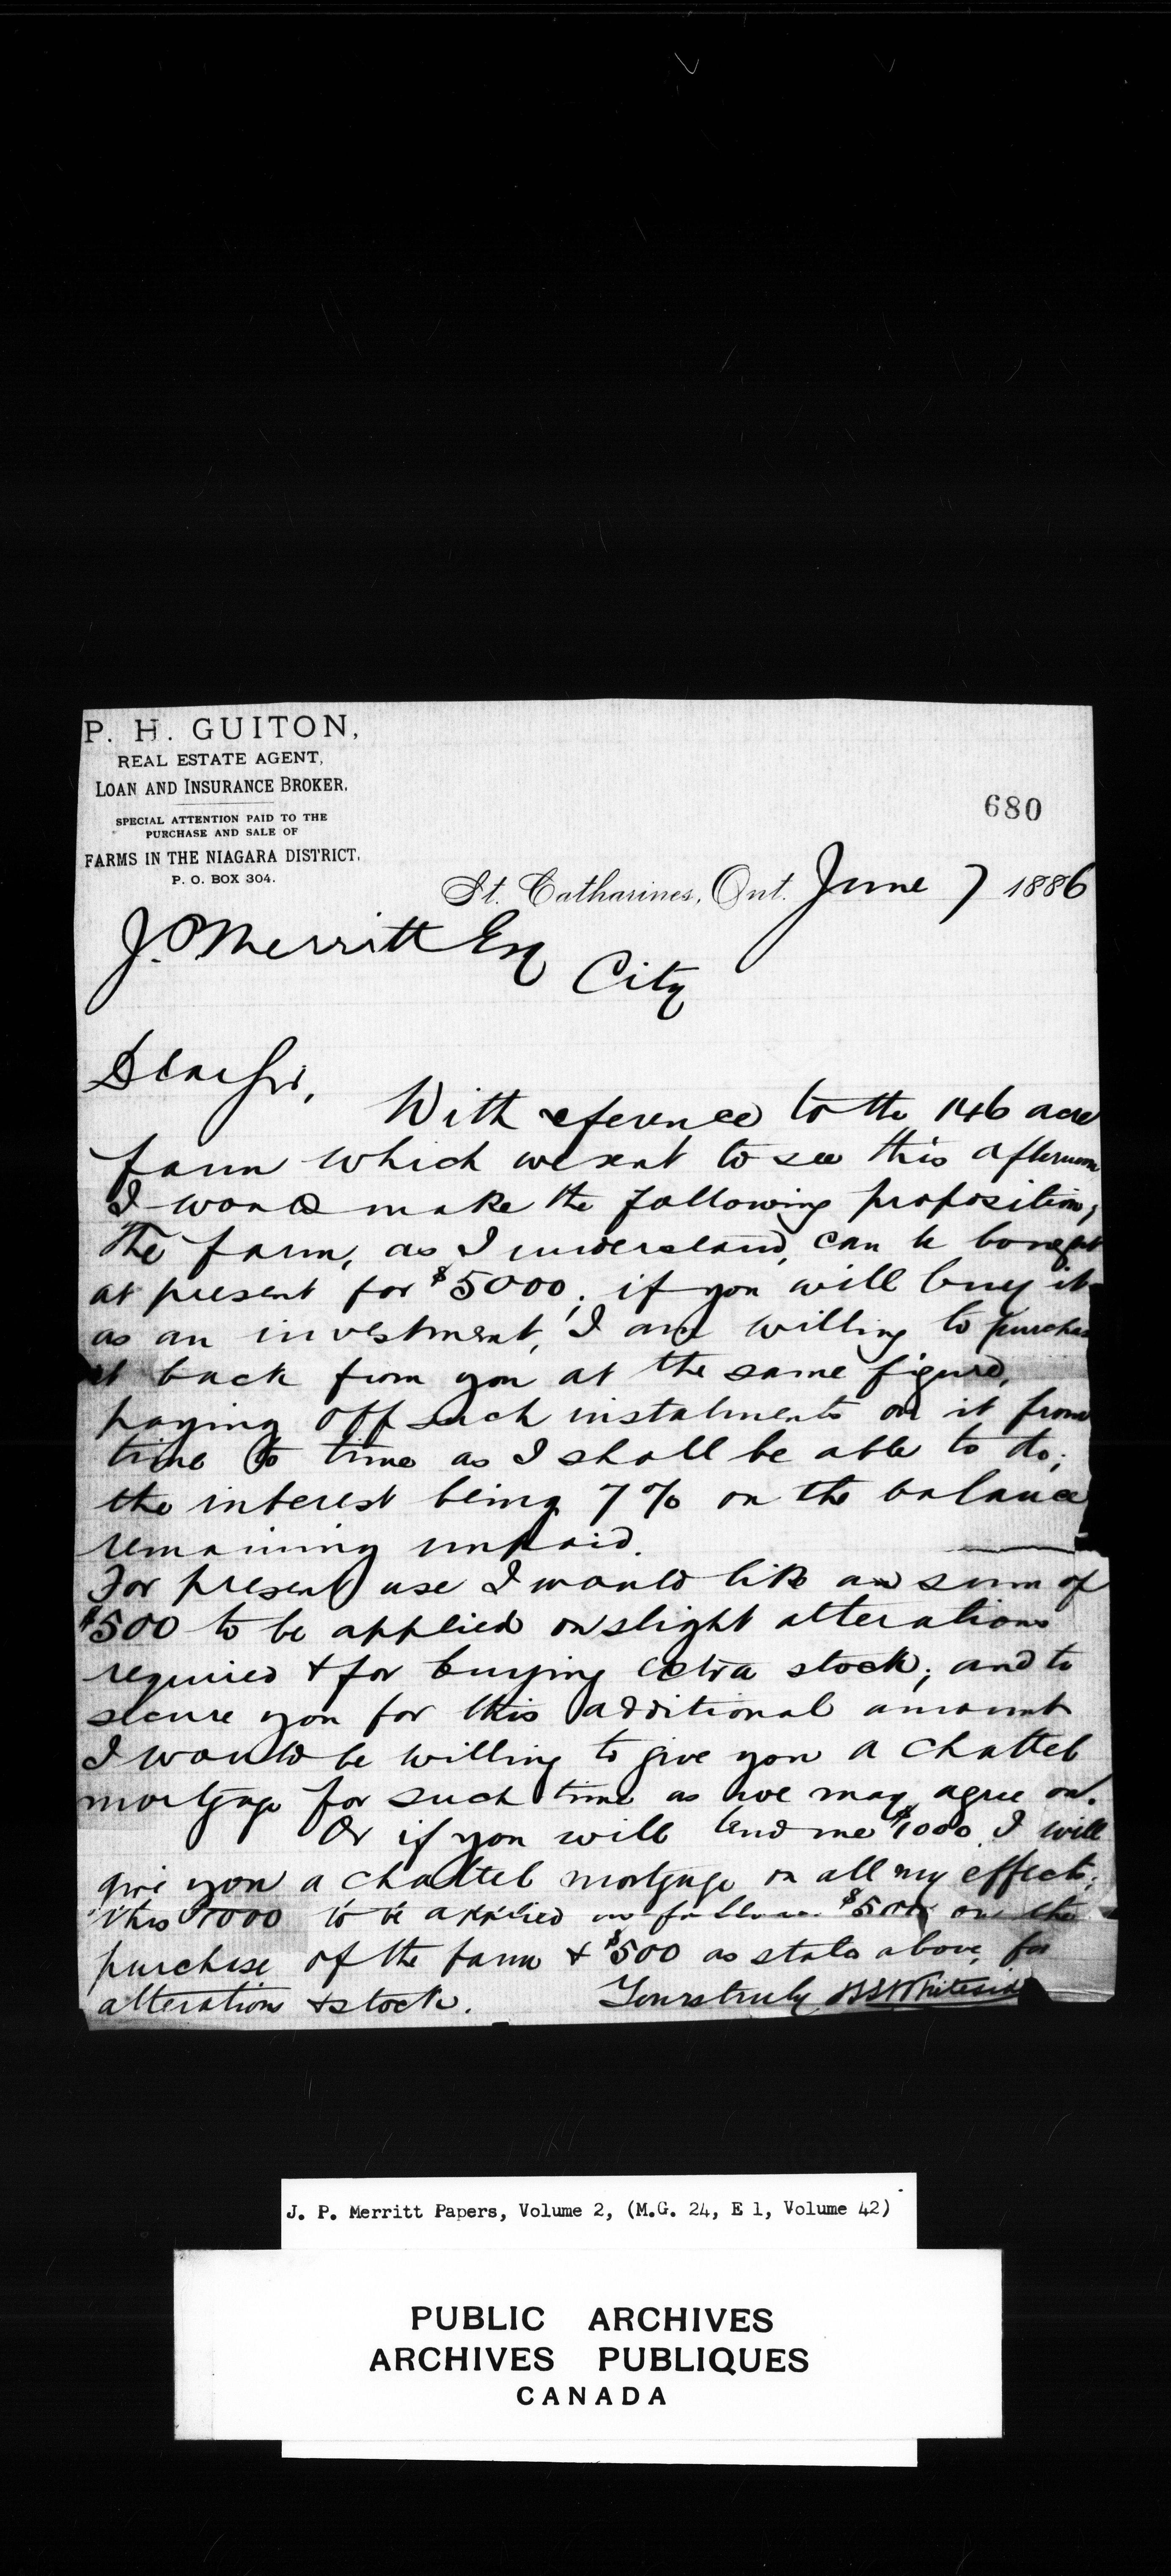 P. H. GUITON,
REAL ESTATE AGENT,
LOAN AND INSURANCE BROKER.
SPECIAL ATTENTION PAID TO THE
PURCHASE AND SALE OF
FARMS IN THE NIAGARA DISTRICT.
P. O. BOX 304.
680
St. Catharines, Ont. June 7 1886
J. P. Merritt Esq
City
Dear Sir,
With reference to the 146 acre
farm which we went to see this afternoon
I would make the following proposition;
The farm, as I understand, can be bought
at present for $5000; if you will buy it
as an investment, I am willing to purchase
it back from you at the same figure,
paying off such instalments on it from
time to time as I shall be able to do;
the interest being 7% on the balance
remaining unpaid.
For present use I would like a sum of
$500 to be applied on slight alterations
required & for buying extra stock; and to
secure you for this additional amount
I would be willing to give you a chattel
mortgage for such time as we may agree on.
Or if you will lend me $1000 I will
give you a chattel mortgage on all my effects;
this $1000 to be applied as follows $500 on the
purchase of the farm & $500 as stated above for
alteration & stock. Yours truly Whiteside
J. P. Merritt Papers, Volume 2, (M.G. 24, E 1, Volume 42)
PUBLIC ARCHIVES
ARCHIVES PUBLIQUES
CANADA